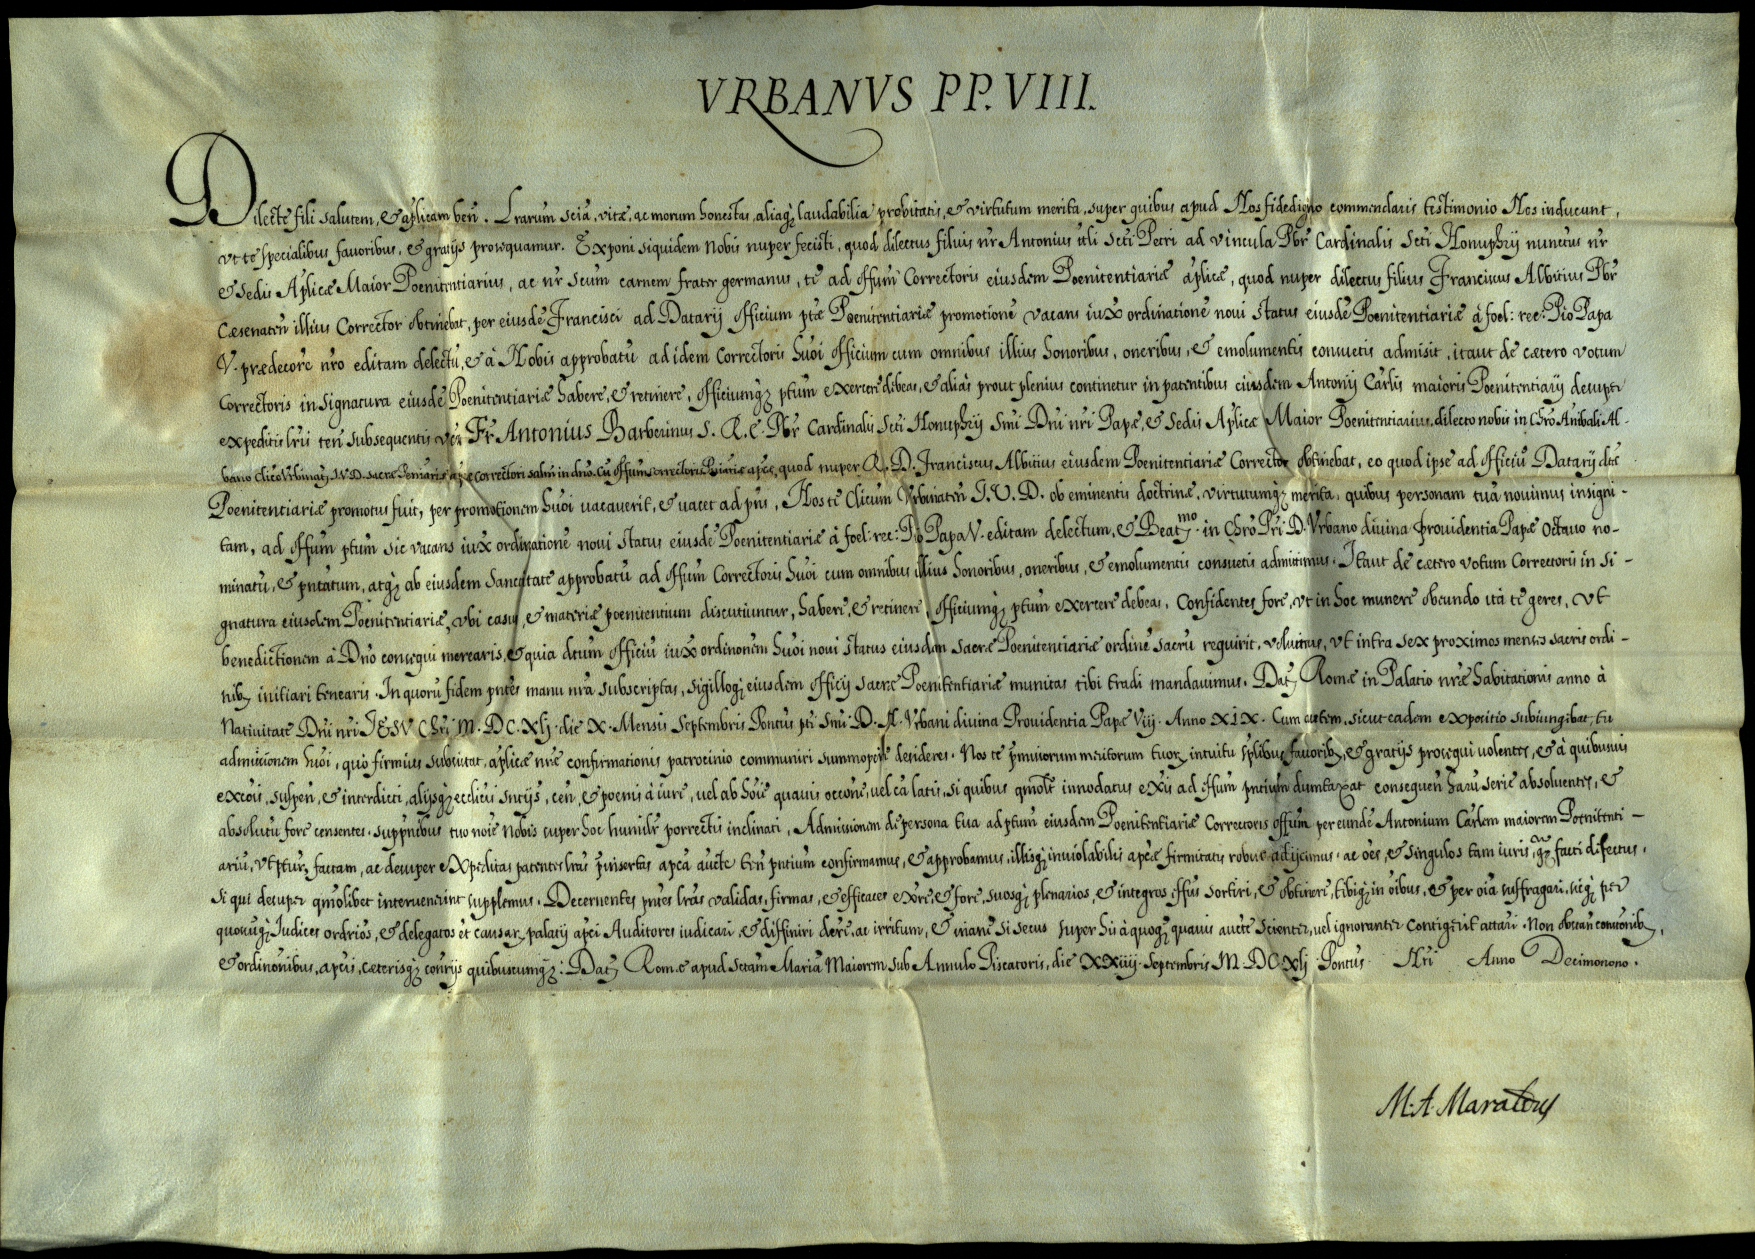 VRBANVS PP. VIII.
Dilecte fili salutem, & aplicam ben. Lrarum scia, vitæ, ac morum honestas, aliaq; laudabilia probitatis, & virtutum merita, super quibus apud Nos fidedigno commendaris testimonio Nos inducunt,
vt te specialibus fauoribus, & gratijs prosequamur. Exponi siquidem nobis nuper fecisti, quod dilectus filius nr Antonius tt̃li Scti Petri ad vincula Pbr Cardinalis Scti Honuphrij nunctus nr̃
& Sedis Aplicæ Maior Poenitentiarius, ac nr scum carnem frater germanus, te ad offum Correctoris eiusdem Poenitentiariæ aplicæ, quod nuper dilectus filius Franciscus Albitius Pbr
Cæsenaten illius Corrector obtinebat, per eiusdẽ Francisci ad Datarij officium ptæ Poenitentiariæ promotionẽ vacans iux ordinationẽ noui status eiusdẽ Poenitentiariæ à foel: rec: Pio Papa
V. prædecorẽ nro editam delectũ, & à Nobis approbatũ ad idem Correctoris huoi officium cum omnibus illius honoribus, oneribus, & emolumentis consuetis admisit, itaut de cætero votum
Correctoris in signatura eiusdẽ Poenitentiariæ habere, & retinere, officiumq; ptum exercere debeas, & alias prout plenius continetur in patentibus eiusdem Antonij Carlis maioris Poenitentiarij desuper
expeditis lris ten subsequentis vez Fr Antonius Barberinus S. R. E. Pbr Cardinalis Scti Honuphrij Smi Dni nri Papæ, & Sedis Aplicæ Maior Poenitentiarius, dilecto nobis in Chro Anibali Al-
bano Clico Vrbinat; J. V. D. sacræ Pœniariæ aplicæ Correctori salm in dno. Cũ offum Correctoris Pniariæ apcæ, quod nuper R. D. Franciscus Albitius eiusdem Poenitentiariæ Corrector obtinebat, eo quod ipse ad officiũ Datarij dctæ
Poenitentiariæ promotus fuit, per promotionem huoi vacauerit, & vacet ad pñs, Nos te Clicum Vrbinatẽn J. V. D. ob eminentis doctrinæ, virtutumq; merita, quibus personam tuã nouimus insigni-
tam, ad offum ptum sic vacans iux ordinationẽ noui status eiusdẽ Poenitentiariæ à foel: rec: Pio Papa V. editam delectum, & Beat;mo in Chro Pri D. Vrbano diuina prouidentia Papæ Octauo no-
minatũ, & pñtatum, atq; ab eiusdem sanctitate approbatũ ad offum Correctoris huoi cum omnibus illius honoribus, oneribus, & emolumentis consuetis admittimus. Itaut de cætero votum Correctoris in si-
gnatura eiusdem Poenitentiariæ, vbi casus, & materiæ poenitentium discutiuntur, habere, & retinere, officiumq; ptum exercere debeas. Confidentes fore, vt in hoc munere obeundo ità te geres, vt
benedictionem à Dno consequi merearis, & quia dctum officiũ iux ordinonem huoi noui status eiusdem sacræ Poenitentiariæ ordinẽ sacrũ requirit, volumus, vt intra sex proximos menses sacris ordi-
nib; initiari tenearis. In quorũ fidem pntes manu nra subscriptas, sigilloq; eiusdem officij sacræ Poenitentiariæ munitas tibi tradi mandauimus. Dat; Romæ in Palatio nræ habitationis anno à
Natiuitate Dni nri JESV Chri M. DC. Xlj. die X. Mensis Septembris Pontus pti Smi D. N. Vrbani diuina Prouidentia Papæ Viij. Anno XIX. Cum autem, sicut eadem expositio subiungebat, tu
admissionem huoi, quò firmius subsistat, aplicæ nræ confirmationis patrocinio communiri summoperè desideres. Nos te præmissorum meritorum tuoꝝ intuitu splibus fauorib; & gratijs prosequi volentes, & à quibusuis
excois, suspen, & interdicti, alijsq; ecclicis sntijs, cen, & poenis à iure, vel ab hoie quauis occone, vel cã latis, si quibus qmolt innodatus exis ad effum pntium dumtaxat consequen harũ serie absoluentes, &
absolutũ fore censentes. suppnibus tuo noie Nobis super hoc humilr porrectis inclinati, Admissionem de persona tua ad ptum eiusdem Poenitentiariæ Correctoris offum per eundẽ Antonium Carlem maiorem Poenitenti-
ariũ, vt ptur, factam, ac desuper expeditas patentes lras pinsertas apca aucte ten pntium confirmamus, & approbamus, illisq; inuiolabilis apcæ firmitatis robur adijcimus, ac oes, & singulos tam iuris, q; facti defectus,
si qui desuper qmolibet interuenerint supplemus. Decernentes pntes lras validas, firmas, & efficaces exre, & fore, suosq; plenarios, & integros effus sortiri, & obtinere, tibiq; in oibus, & per oia suffragari, sicq; per
quoscuq; Judices ordrios, & delegatos et causar; palatij apci Auditores iudicari & diffiniri dere, ac irritum, & inane si secus super his à quoq; quauis aucte scienter, vel ignoranter contigerit attari. Non obstan constonib;
& ordinonibus, apcis, cæterisq; contrijs quibuscumq;. Dat; Romæ apud Sctam Mariã Maiorem sub Annulo Piscatoris, die XXiiij. Septembris M. DC. Xlj. Pontus Nri Anno Decimonono.
M. A. Maraldus